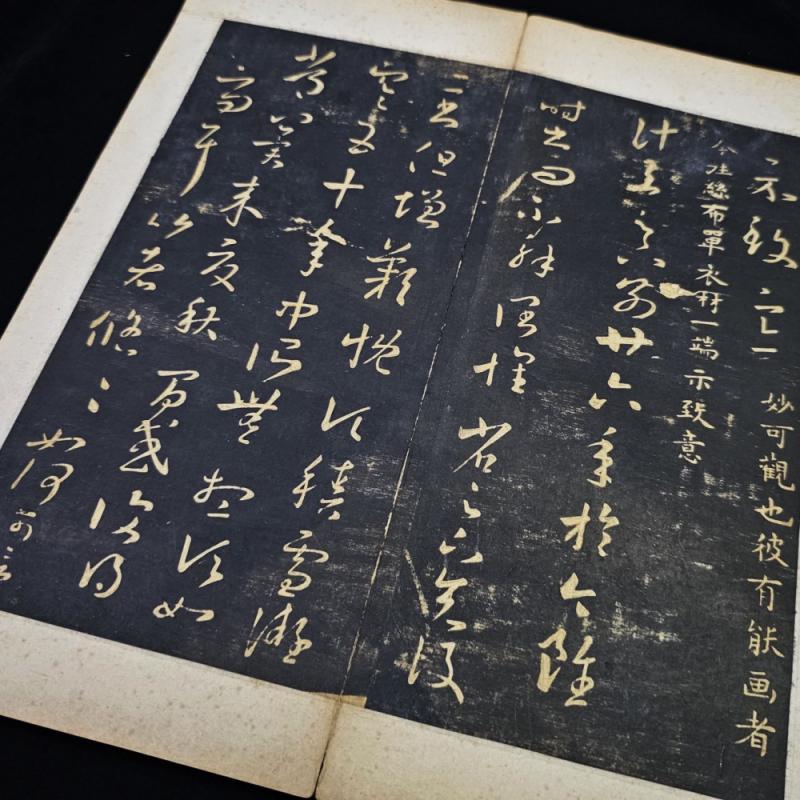 示致意 妙可觀也彼有能画者
今往絲布單衣財一端示致意
計與足下別廿六年於今雖
時書問不解闊懷省足下先後
二書但增歎慨頃積雪凝
寒五十年中所無想頃如
常冀來夏秋間或復得
足下問耳比者悠悠如何可言